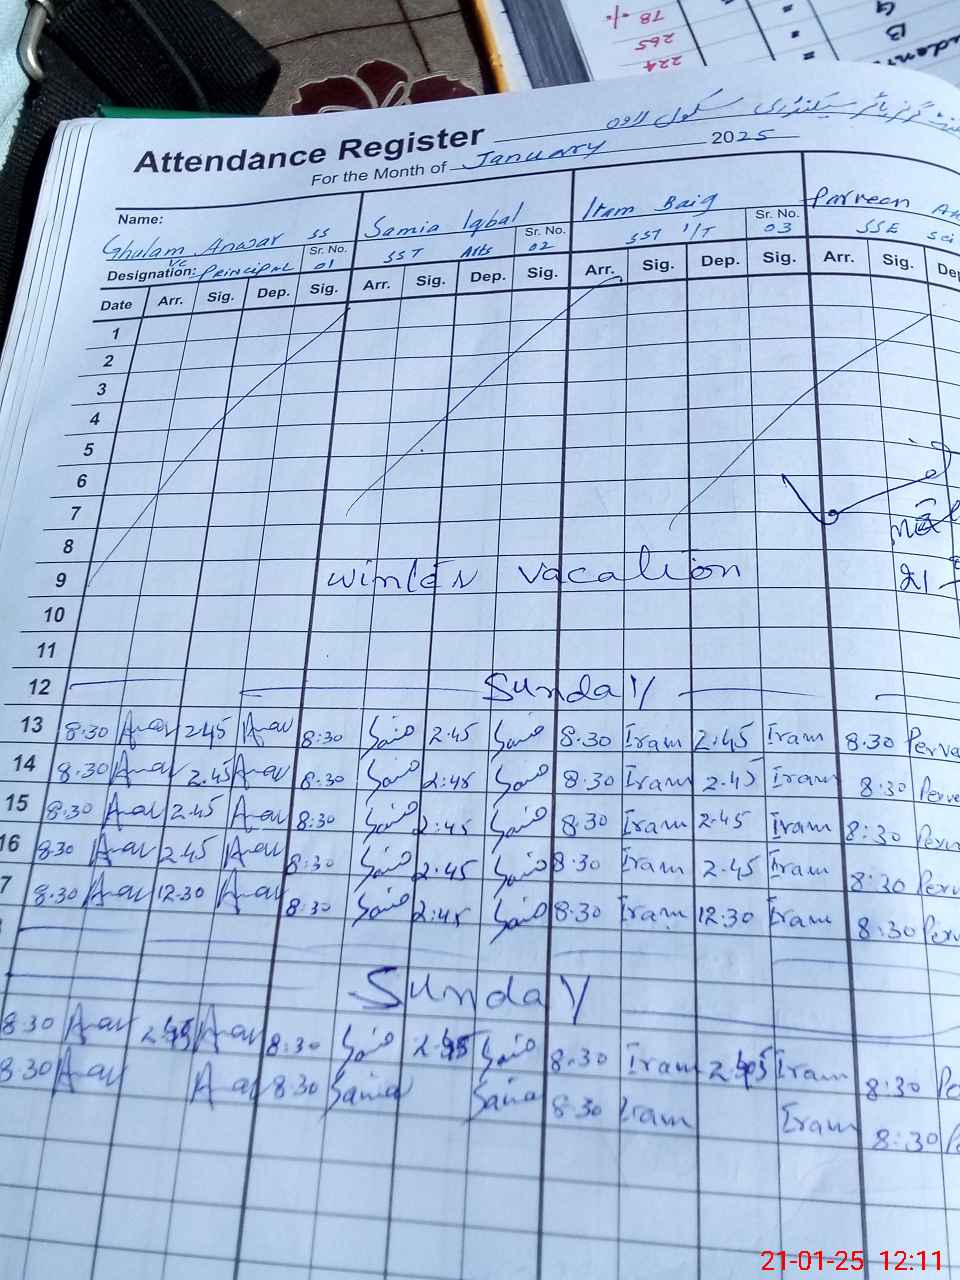 % 78
265
224
B
G
Attendance Register سکول لاوہ
For the Month of January 2025
Name: Ghulam Anwar SS Samia Iqbal Iram Baig Parveen
Designation: VC Principal Sr. No. 01 SST Arts Sr. No. 02 SST I/T Sr. No. 03 SSE Sci
Date Arr. Sig. Dep. Sig. Arr. Sig. Dep. Sig. Arr. Sig. Dep. Sig. Arr. Sig. Dep
1
2
3
4
5
6
7
8
9 winter vacation 21
10
11
12 Sunday
13 8.30 Anar 2.45 Anar 8:30 Samia 2.45 Samia 8.30 Iram 2.45 Iram 8.30 Perve
14 8.30 Anar 2.45 Anar 8:30 Samia 2:45 Samia 8.30 Iram 2.45 Iram 8:30 Perve
15 8.30 Anar 2.45 Anar 8:30 Samia 2:45 Samia 8.30 Iram 2.45 Iram 8:30 Perv
16 8.30 Anar 2.45 Anar 8:30 Samia 2:45 Samia 8.30 Iram 2.45 Iram 8:30 Perv
7 8.30 Anar 12.30 Anar 8:30 Samia 2:45 Samia 8.30 Iram 12.30 Iram 8:30 Perv
Sunday
8.30 Anar 2.45 Anar 8:30 Samia 2.45 Samia 8.30 Iram 2.45 Iram 8:30 Pe
8.30 Anar Anar 8.30 Samia Samia 8.30 Iram Iram 8:30 P
21-01-25 12:11